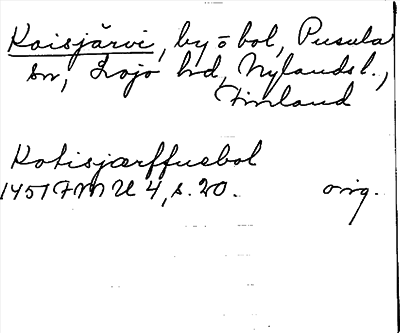 Koisjärvi, by o bol, Pusula
sn, Lojo hd, Nylands l.,
Finland
Kotisjærffuebol
1451 FMU 4, s. 20. orig.